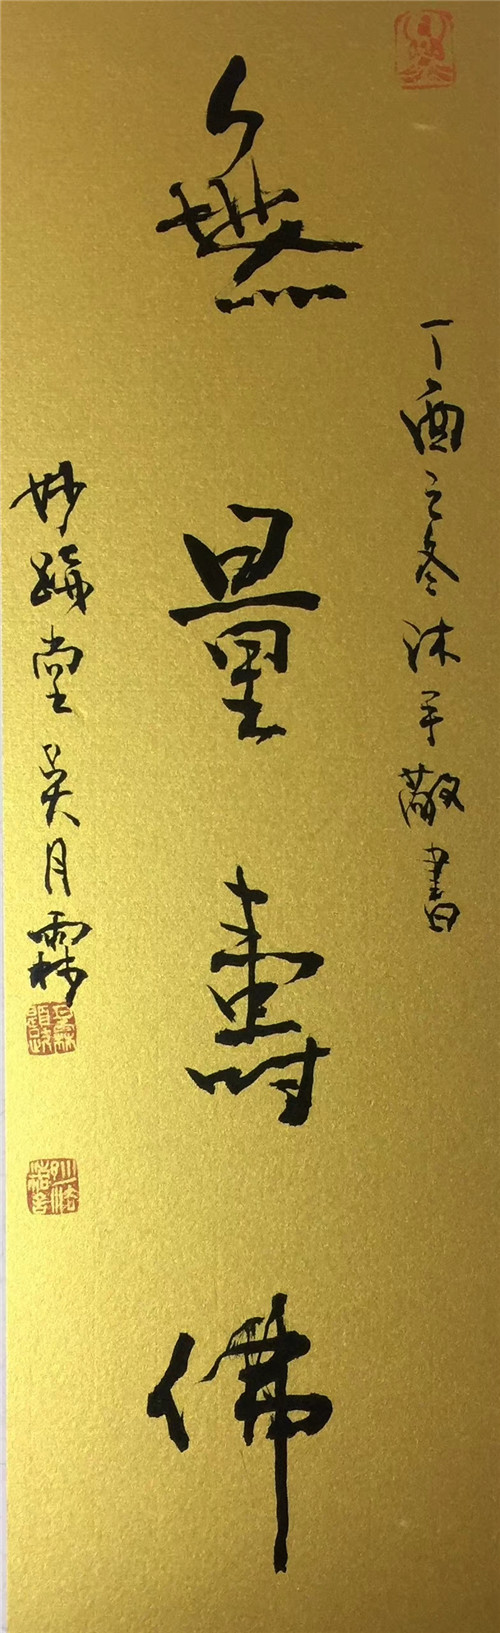 丁酉之冬沐手敬書
無量壽佛
妙堂吳月霖